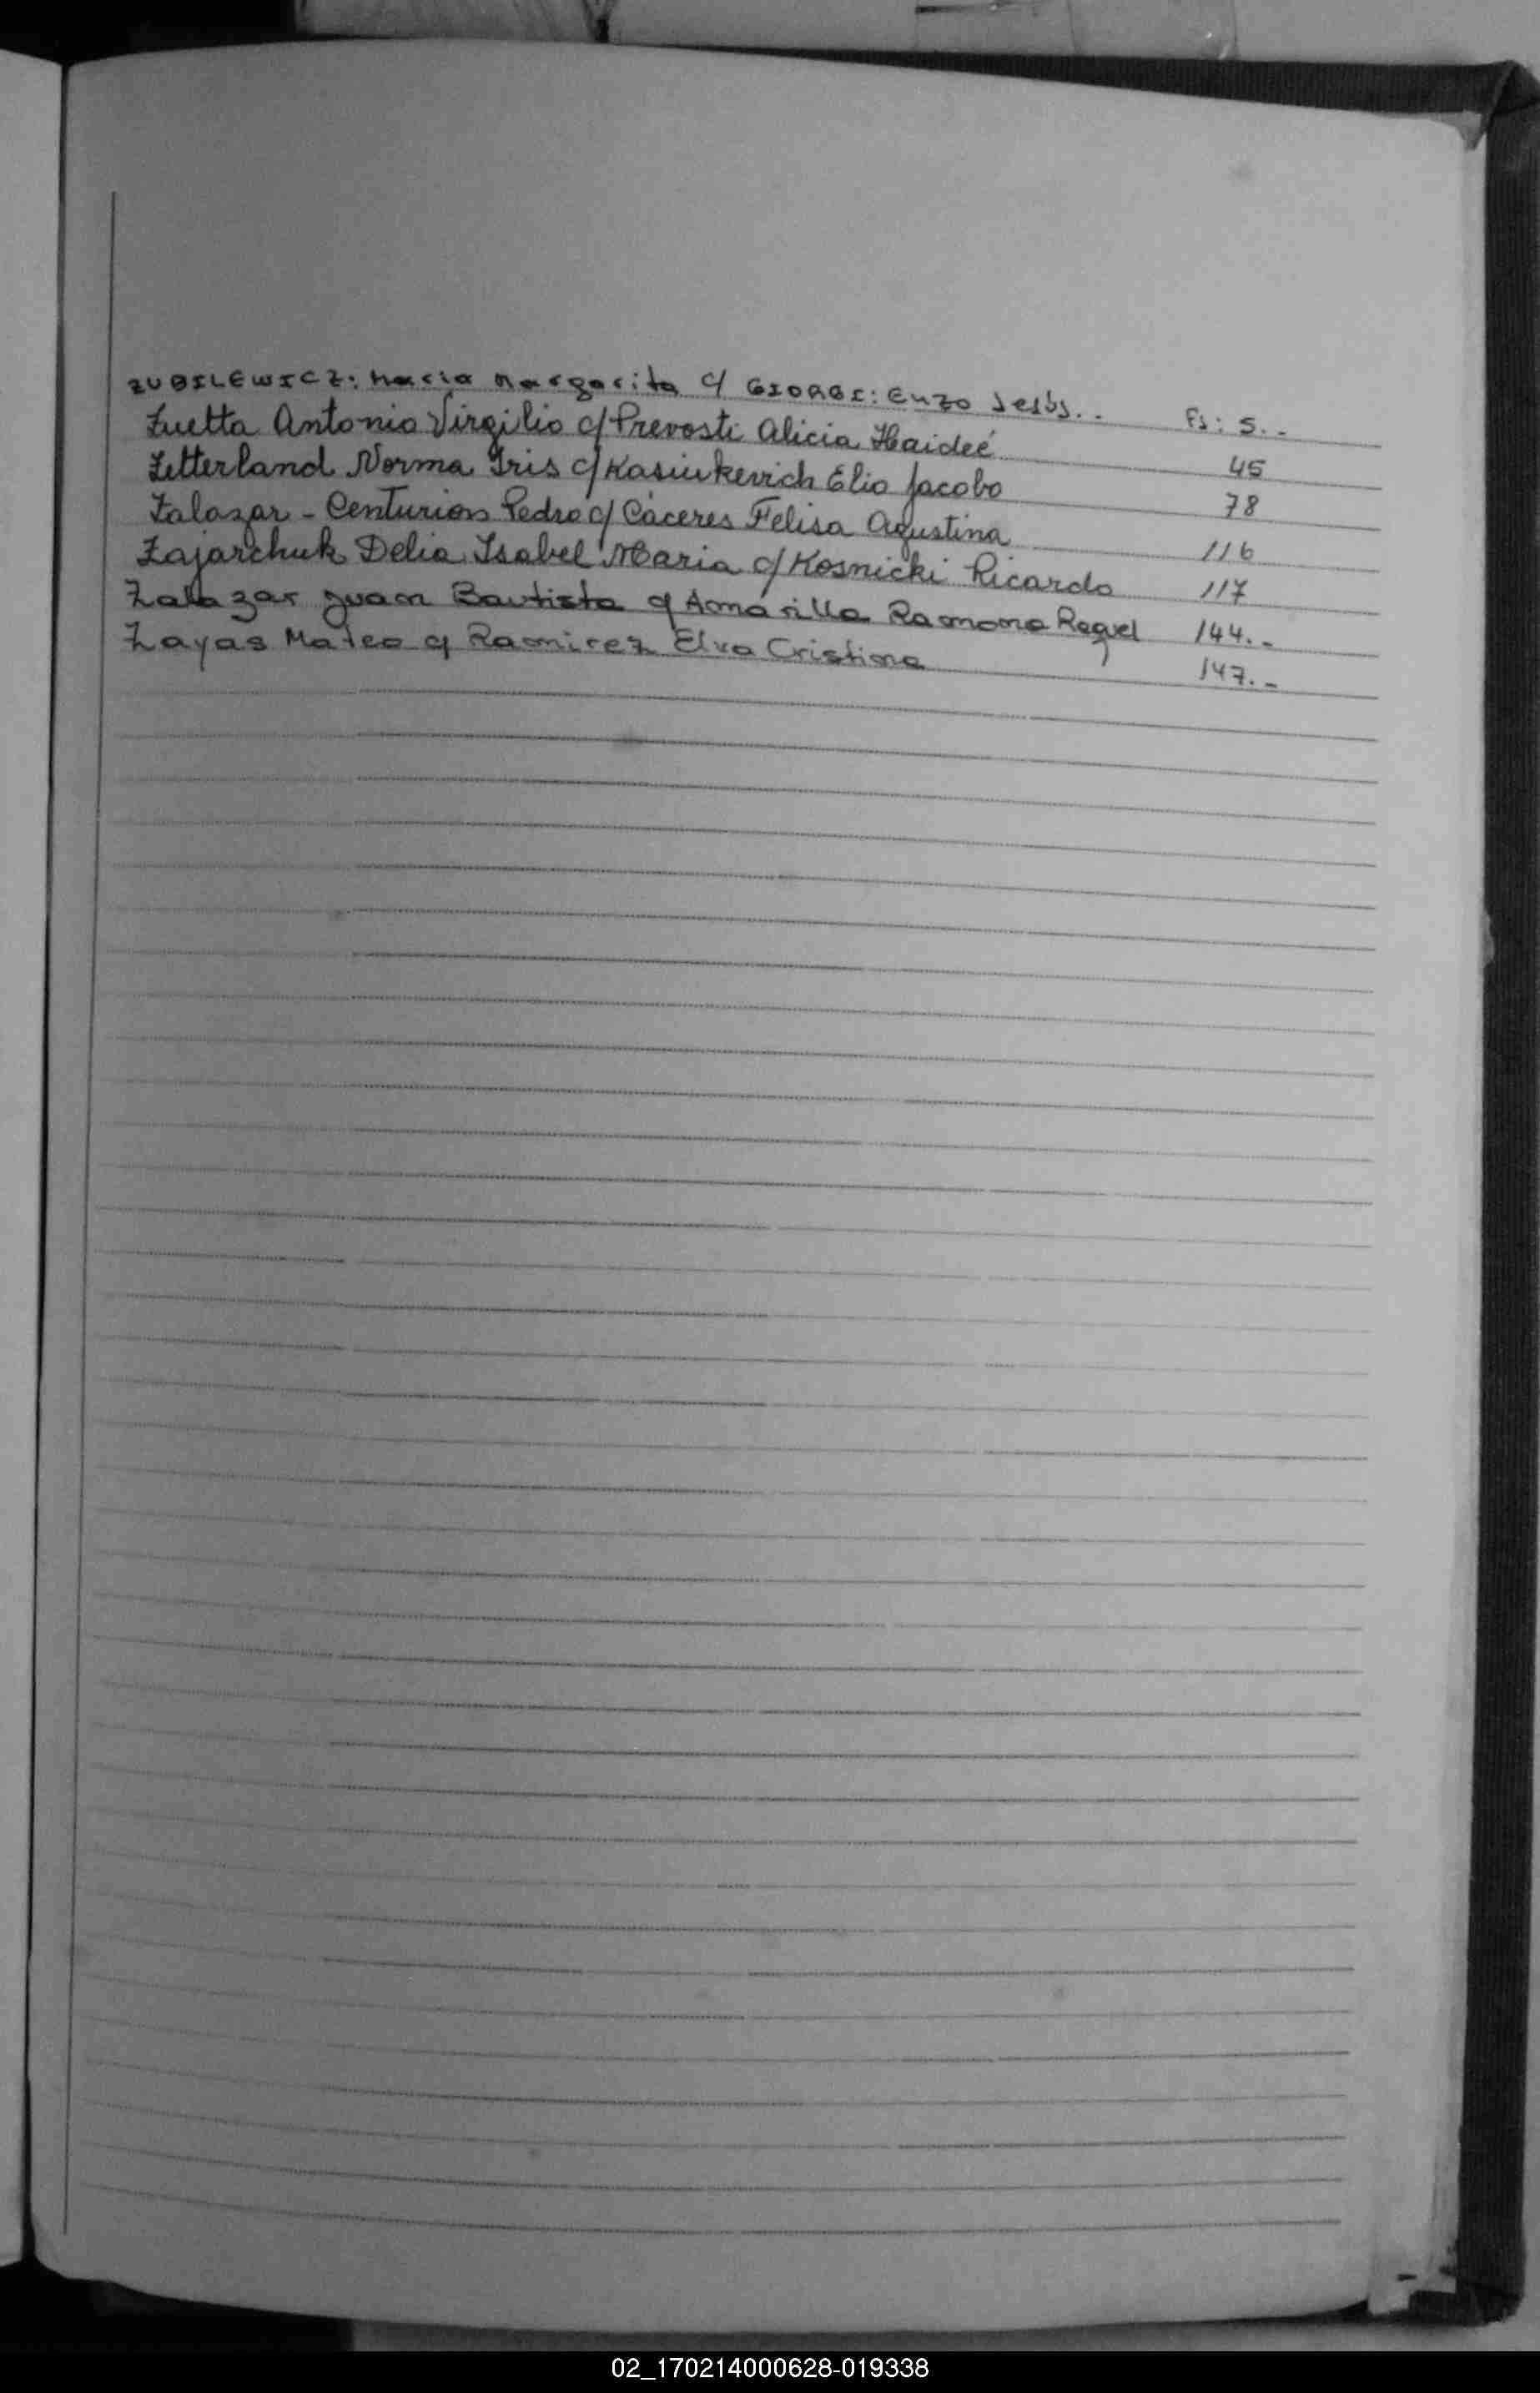 ZUBILEWICZ: Maria Margarita c/ GIORGI: Enzo Jesús.. Fs: 5..-
Zuetta Antonio Virgilio c/ Prevosti Alicia Haideé 45
Zetterland Norma Iris c/ Kasiukevich Elio Jacobo 78
Zalazar - Centurion Pedro c/ Cáceres Felisa Agustina 116
Zajarchuk Delia Isabel Maria c/ Kosnicki Ricardo 117
Zalazar Juan Bautista c/ Amarilla Ramona Raquel 144.-
Zayas Mateo c/ Ramirez Elva Cristina 147.-
02_170214000628-019338